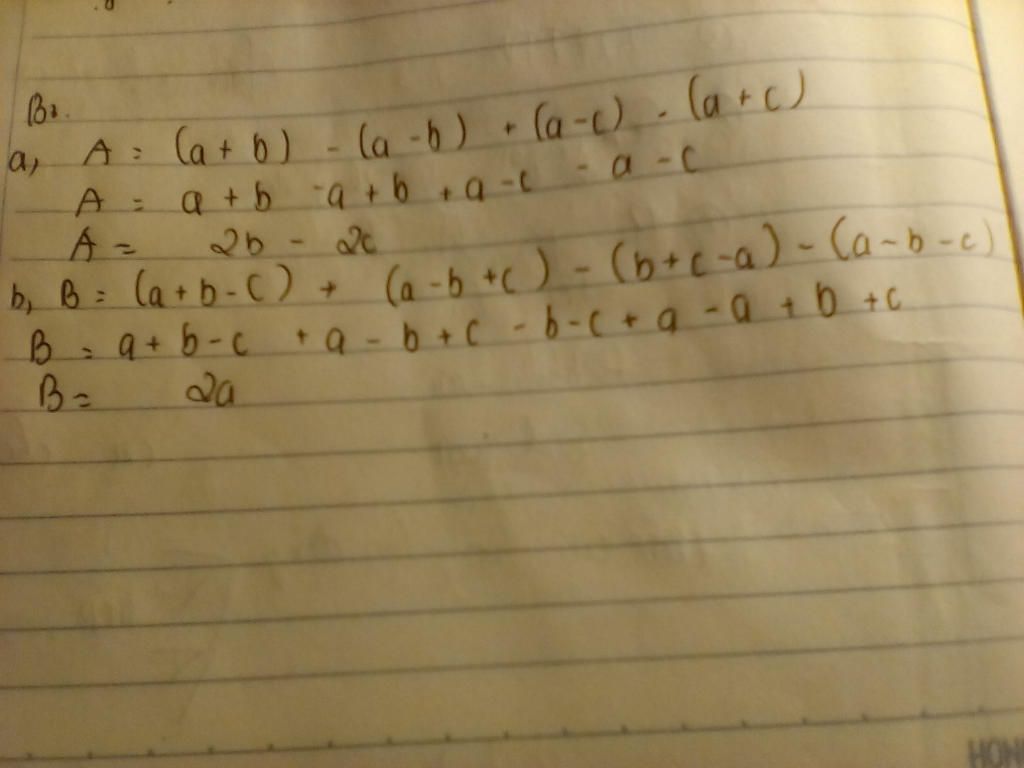 B2.
a, A = (a + b) - (a - b) + (a - c) - (a + c)
A = a + b - a + b + a - c - a - c
A = 2b - 2c
b, B = (a + b - c) + (a - b + c) - (b + c - a) - (a - b - c)
B = a + b - c + a - b + c - b - c + a - a + b + c
B = 2a